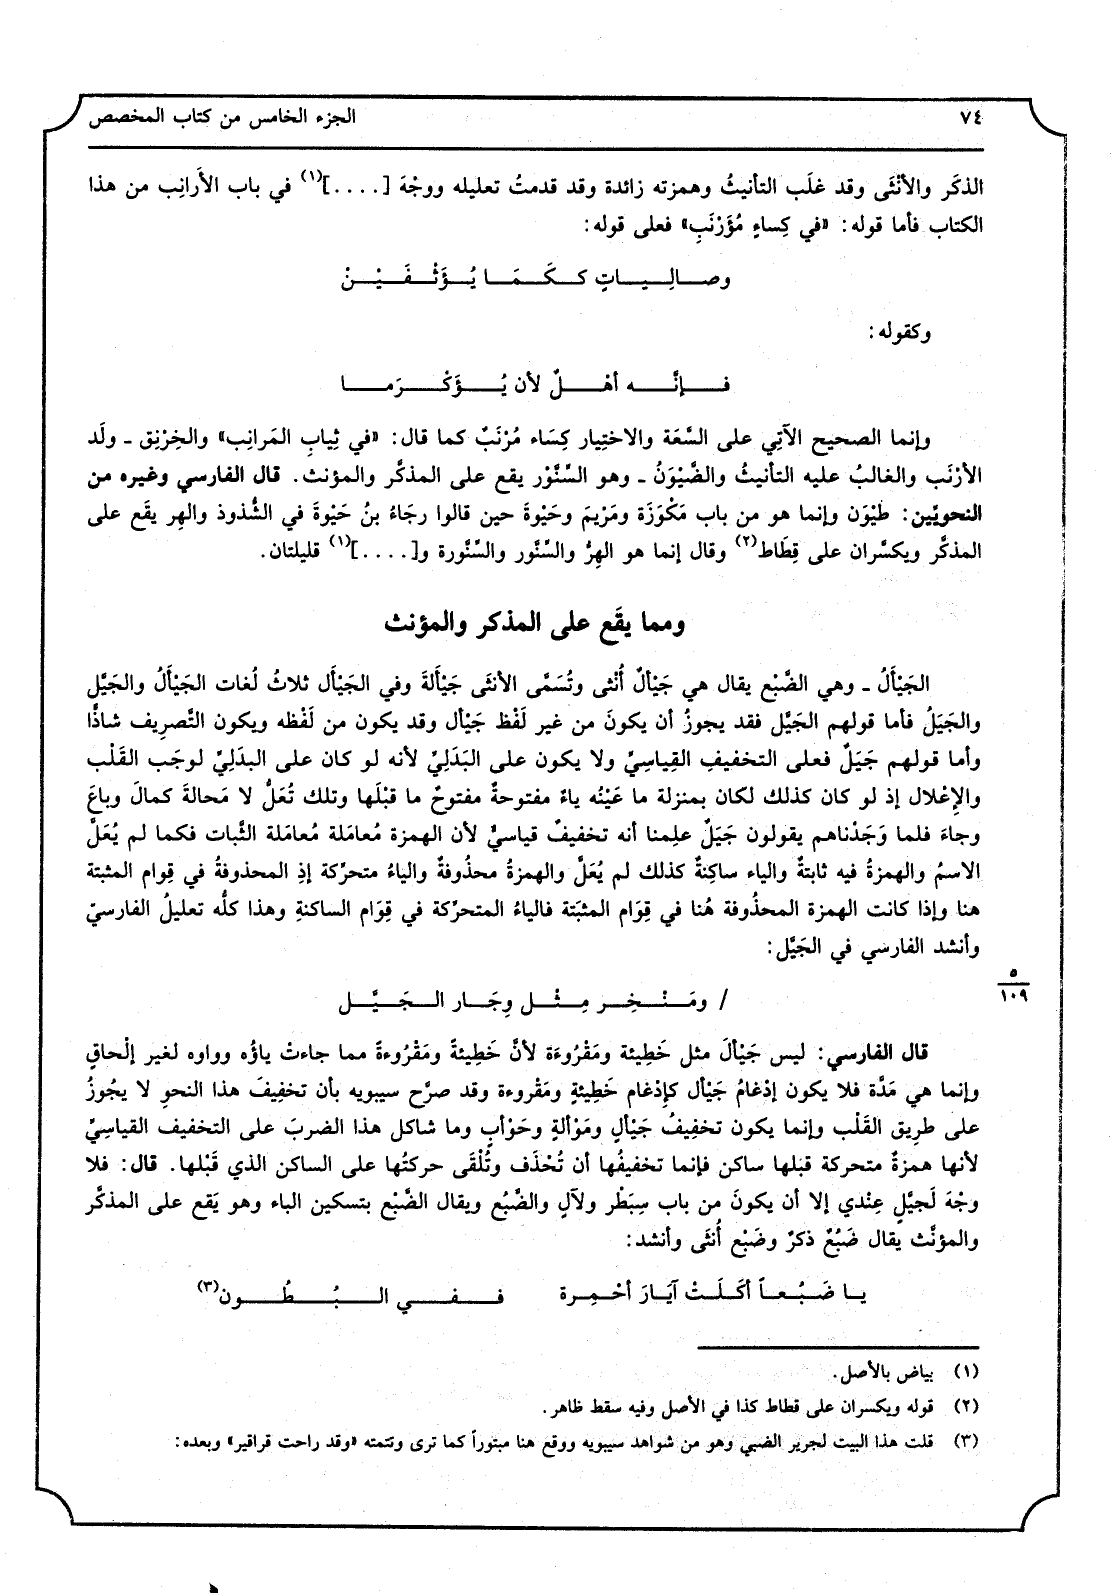 ٧٤ الجزء الخامس من كتاب المخصص
الذكَر والأنْثَى وقد غلَب التأنيثُ وهمزته زائدة وقد قدمتُ تعليله ووجْهَ [....](١) في باب الأَرانِب من هذا
الكتاب فأما قوله: «في كِساءٍ مُؤَرْنَبِ» فعلى قوله:
وصــالِـيــاتٍ كــكَــمَــا يُــؤَثْــفَــيْــنْ
وكقوله:
فــإنَّــه أهْــلٌ لأن يُــؤَكْــرَمــا
وإنما الصحيح الآتِي على السَّعَة والاختِيار كِسَاء مُرْنَبٌ كما قال: «في ثِيابِ المَرانِب» والخِرْنِق ـ ولَد
الأرْنَب والغالبُ عليه التأنيثُ والضَّيْوَنُ ـ وهو السَّنَّوْر يقع على المذكَّر والمؤنث. قال الفارسي وغيره من
النحويَّين: طيْوَن وإنما هو من باب مَكْوَزَة ومَزْيمَ وحَيْوةَ حين قالوا رجَاءُ بنُ حَيْوةَ في الشُّذوذ والهِر يقَع على
المذكَّر ويكسَّران على قِطَاط(٢) وقال إنما هو الهِرُّ والسِّنَّور والسِّنَّورة و[....](١) قليلتان.
ومما يقَع على المذكر والمؤنث
الجَيْأَلُ ـ وهي الضَّبُع يقال هي جَيْأَلٌ أُنْثى وتُسَمَّى الأنثَى جَيْأَلةَ وفي الجَيْأَل ثلاثُ لُغات الجَيْأَلُ والجَيَّل
والجَيَلُ فأما قولهم الجَيَّل فقد يجوزُ أن يكونَ من غير لَفْظ جَيْأل وقد يكون من لَفْظه ويكون التَّصرِيف شاذًّا
وأما قولهم جَيَلٌ فعلى التخفيفِ القِياسيِّ ولا يكون على البَدَليِّ لأنه لو كان على البدليِّ لوجَب القَلْب
والإِعْلال إذ لو كان كذلك لكان بمنزلة ما عَيْنُه ياءٌ مفتوحةٌ مفتوحٌ ما قبْلَها وتلك تُعَلُّ لا مَحالةَ كمالَ وباعَ
وجاءَ فلما وَجَدْناهم يقولون جَيَلٌ علِمنا أنه تخفيفٌ قياسيٌّ لأن الهمزة مُعامَلة مُعامَلة الثَّبات فكما لم يُعَلَّ
الاسمُ والهمزةُ فيه ثابتةٌ والياء ساكِنةٌ كذلك لم يُعَلَّ والهمزةُ محذُوفةٌ والياءُ متحركة إذِ المحذوفةُ في قِوام المثبتة
هنا وإذا كانت الهمزة المحذُوفة هُنا في قِوَام المثبَتة فالياءُ المتحركة في قِوَام الساكنةِ وهذا كلُّه تعليلُ الفارسيّ
وأنشد الفارسي في الجَيَّل:
٥
١٠٩
/ ومَــنْــخِــر مِــثْــل وِجَــار الــجَــيَّــل
قال الفارسي: ليس جَيْأَلَ مثل خَطِيئة ومَقْرُوءَة لأنَّ خَطِيئةً ومَقْرُوءةً مما جاءتْ ياؤُه وواوه لغير إلْحاقٍ
وإنما هي مَدَّة فلا يكون إدْغامُ جَيْأل كإِدْغام خَطِيئةٍ ومَقْروءة وقد صرَّح سيبويه بأن تخفِيفَ هذا النحوِ لا يجُوزُ
على طرِيق القَلْب وإنما يكون تخفِيفُ جَيْألٍ ومَوْألةٍ وحَوْأبٍ وما شاكل هذا الضربَ على التخفيف القياسيِّ
لأنها همزةٌ متحركة قبَلها ساكن فإنما تخفيفُها أن تُحْذَف وتُلْقَى حركتُها على الساكن الذي قَبْلها. قال: فلا
وجْهَ لَجيَّلٍ عِنْدي إلا أن يكونَ من باب سِبَطْر ولآلٍ والضَّبُع ويقال الضَّبْع بتسكين الباء وهو يَقع على المذكَّر
والمؤنَّث يقال ضَبُعٌ ذكرٌ وضَبْع أُنثَى وأنشد:
يــا ضَــبُــعــاً أكَــلَــتْ آيَــارَ أحْــمِــرة فــفــي الــبُــطُــون(٣)
(١) بياض بالأصل.
(٢) قوله ويكسران على قطاط كذا في الأصل وفيه سقط ظاهر.
(٣) قلت هذا البيت لجرير الضبي وهو من شواهد سيبويه ووقع هنا مبتوراً كما ترى وتتمته «وقد راحت قراقير» وبعده: